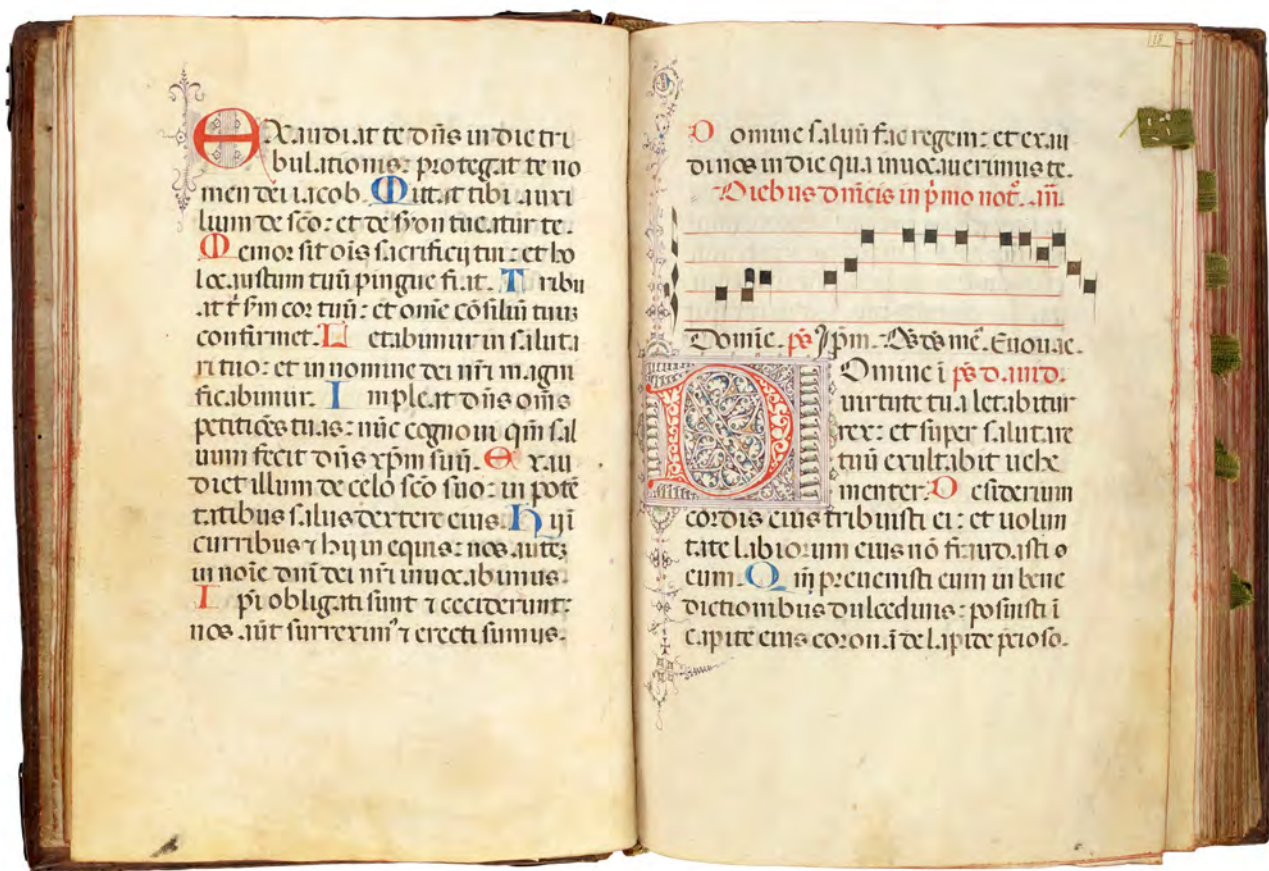 EXaudiat te dñs in die tri
bulationis: protegat te no
men dei iacob. Mittat tibi auxi
lium de sc̃o: et de syon tueatur te.
Memor sit oĩs sacrificij tui: et ho
locaustum tuũ pingue fiat. Tribu
at t sm cor tuũ: et omẽ cõsiliũ tuuz
confirmet. Letabimur in saluta
ri tuo: et in nomine dei nr̃i magni
ficabimur. Impleat dñs oms
petitiões tuas: nũc cognoui qm̃ sal
uum fecit dñs xp̃m suũ. Exau
diet illum de celo sc̃o suo: in potẽ
tatibus salus dextere eius. Hij ĩ
curribus ⁊ hij in equis: nos autez
in noĩe dnĩ dei nr̃i inuocabimus.
Ipi obligati sunt ⁊ ceciderunt:
nos aũt surreximꝰ ⁊ erecti sumus.
18
Domine saluũ fac regem: et exau
di nos in die qua inuocauerimus te.
Diebus dñicis in pͥmo not. añ.
Domĩe. ps Ip̃m. Euouae.
DOmine ĩ ps dauid.
uirtute tua letabitur
rex: et super salutare
tuũ exultabit uehe
menter. Desiderium
cordis eius tribuisti ei: et uolun
tate labiorum eius nõ fraudasti e
eum. Qm̃ preuenisti eum in bene
dictionibus dulcedinis: posuisti ĩ
capite eius coronã de lapide p̃cioso.